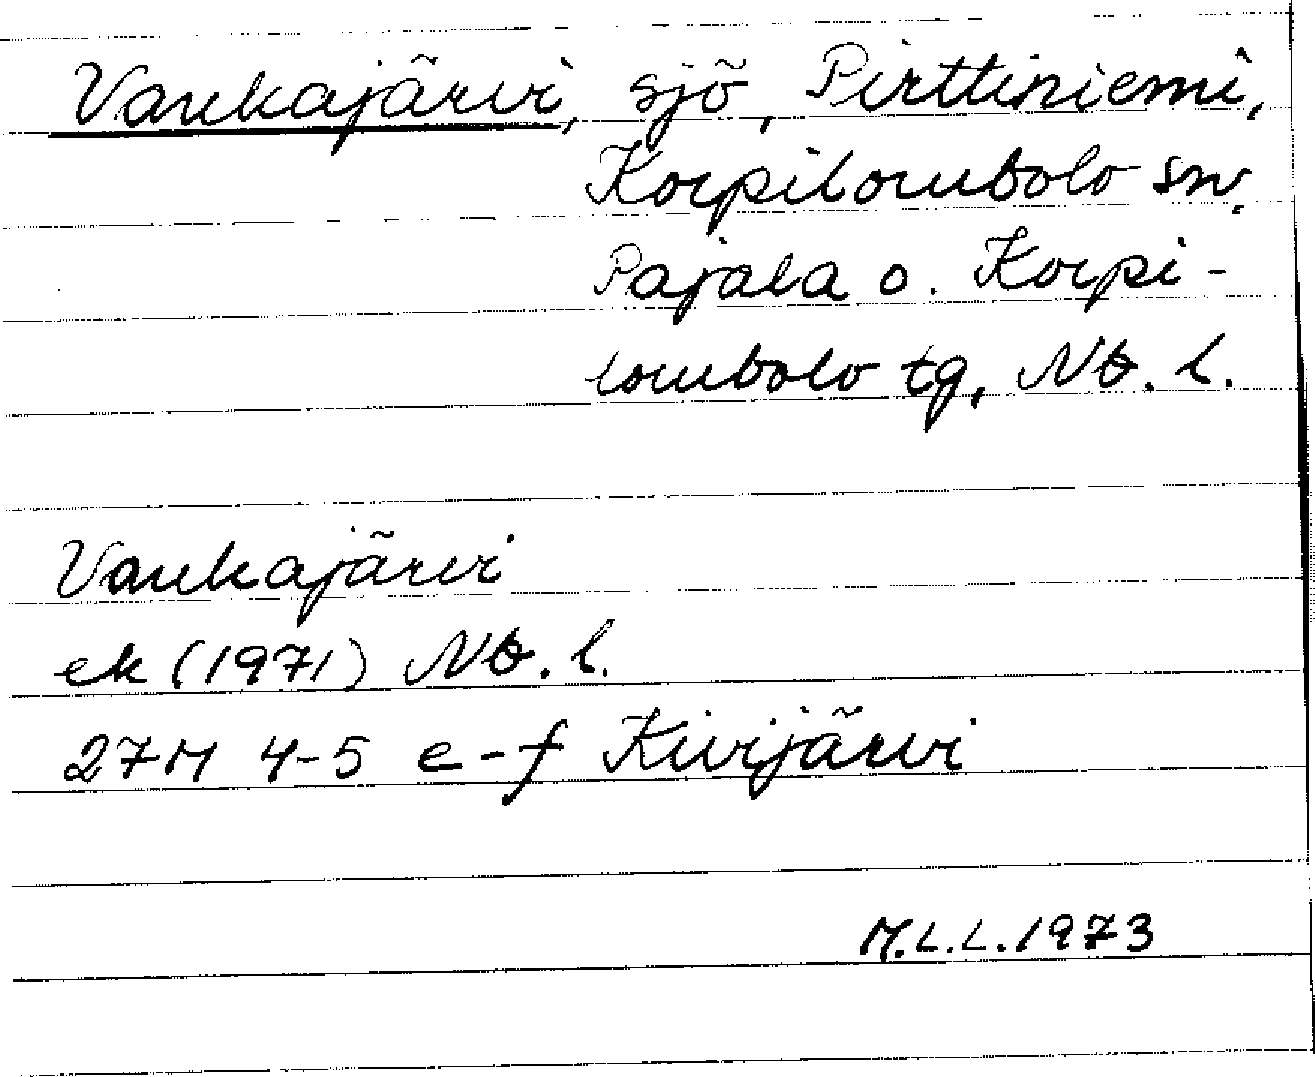 Vankajärvi, sjö, Pirttiniemi,
Korpilombolo sn,
Pajala o. Korpi-
lombolo tg, Nb. l.
Vankajärvi
ek (1971) Nb. l.
27M 4-5 e-f Kivijärvi
M.L.L. 1973